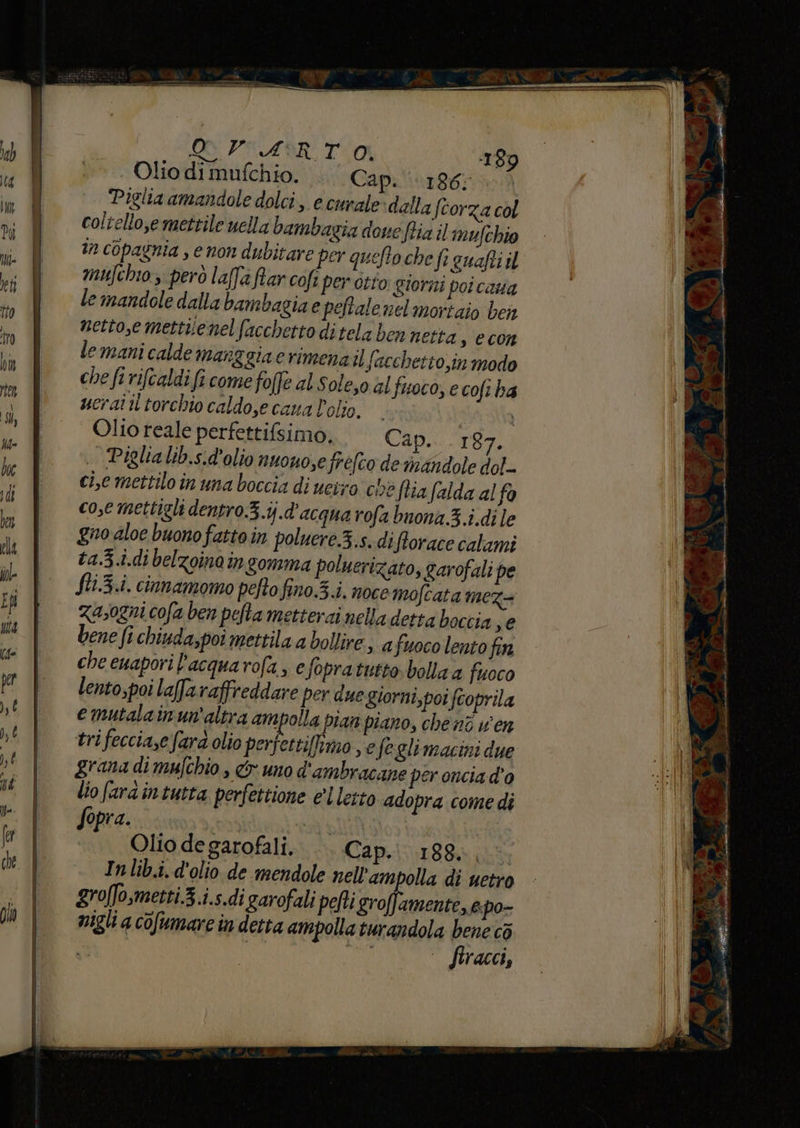 Q V A R T O. 189
Olio di muſchio. Cap. 186.
Piglia amandole dolci, e curale dalla ſcorza col
coltello,e mettile nella bambagia doue ſtia il muſchio
in cōpagnia, e non dubitare per queſto che ſi guaſti il
muſchio, però laſſa ſtar coſi per otto giorni poi caua
le mandole dalla bambagia e peſtale nel mortaio ben
netto,e mettile nel ſacchetto di tela ben netta, e con
le mani calde manggia e rimena il ſacchetto,in modo
che ſi riſcaldi ſi come foſſe al Sole,o al fuoco, e coſi ha
uerai il torchio caldo,e caua l'olio.
Olio reale perfettiſsimo. Cap. 187.
Piglia lib.s.d'olio nuouo,e freſco de mandole dol-
ci,e mettilo in una boccia di uetro che ſtia ſalda al fo
co,e mettigli dentro.℥.ij.d'acqua roſa buona.℥.i.di le
gno aloe buono fatto in poluere.℥.s.di ſtorace calami
ta.℥.i.di belzoino in gomma poluerizato, garofali pe
ſti.℥.i. cinnamomo peſto fino.℥.i. noce moſcata mez-
za,ogni coſa ben peſta metterai nella detta boccia, e
bene ſi chiuda,poi mettila a bollire, a fuoco lento fin
che euapori l'acqua roſa, e ſopra tutto bolla a fuoco
lento,poi laſſa raffreddare per due giorni,poi ſcoprila
e mutala in un'altra ampolla pian piano, che nō u'en
tri feccia,e ſarà olio perfettiſſimo, e ſe gli macini due
grana di muſchio, & uno d'ambracane per oncia d'o
lio ſarà in tutta perfettione e'l letto adopra come di
ſopra.
Olio de garofali. Cap. 188.
In lib.i. d'olio de mendole nell'ampolla di uetro
groſſo,metti.℥.i.s.di garofali peſti groſſamente, e po-
nigli a cōſumare in detta ampolla turandola bene cō
ſtracci,